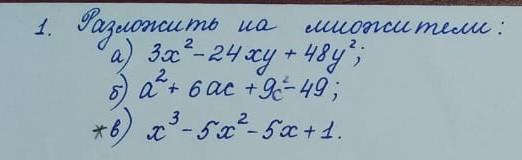 1. Разложить на множители:
а) 3x² - 24xy + 48y²;
б) a² + 6ac + 9c² - 49;
*в) x³ - 5x² - 5x + 1.